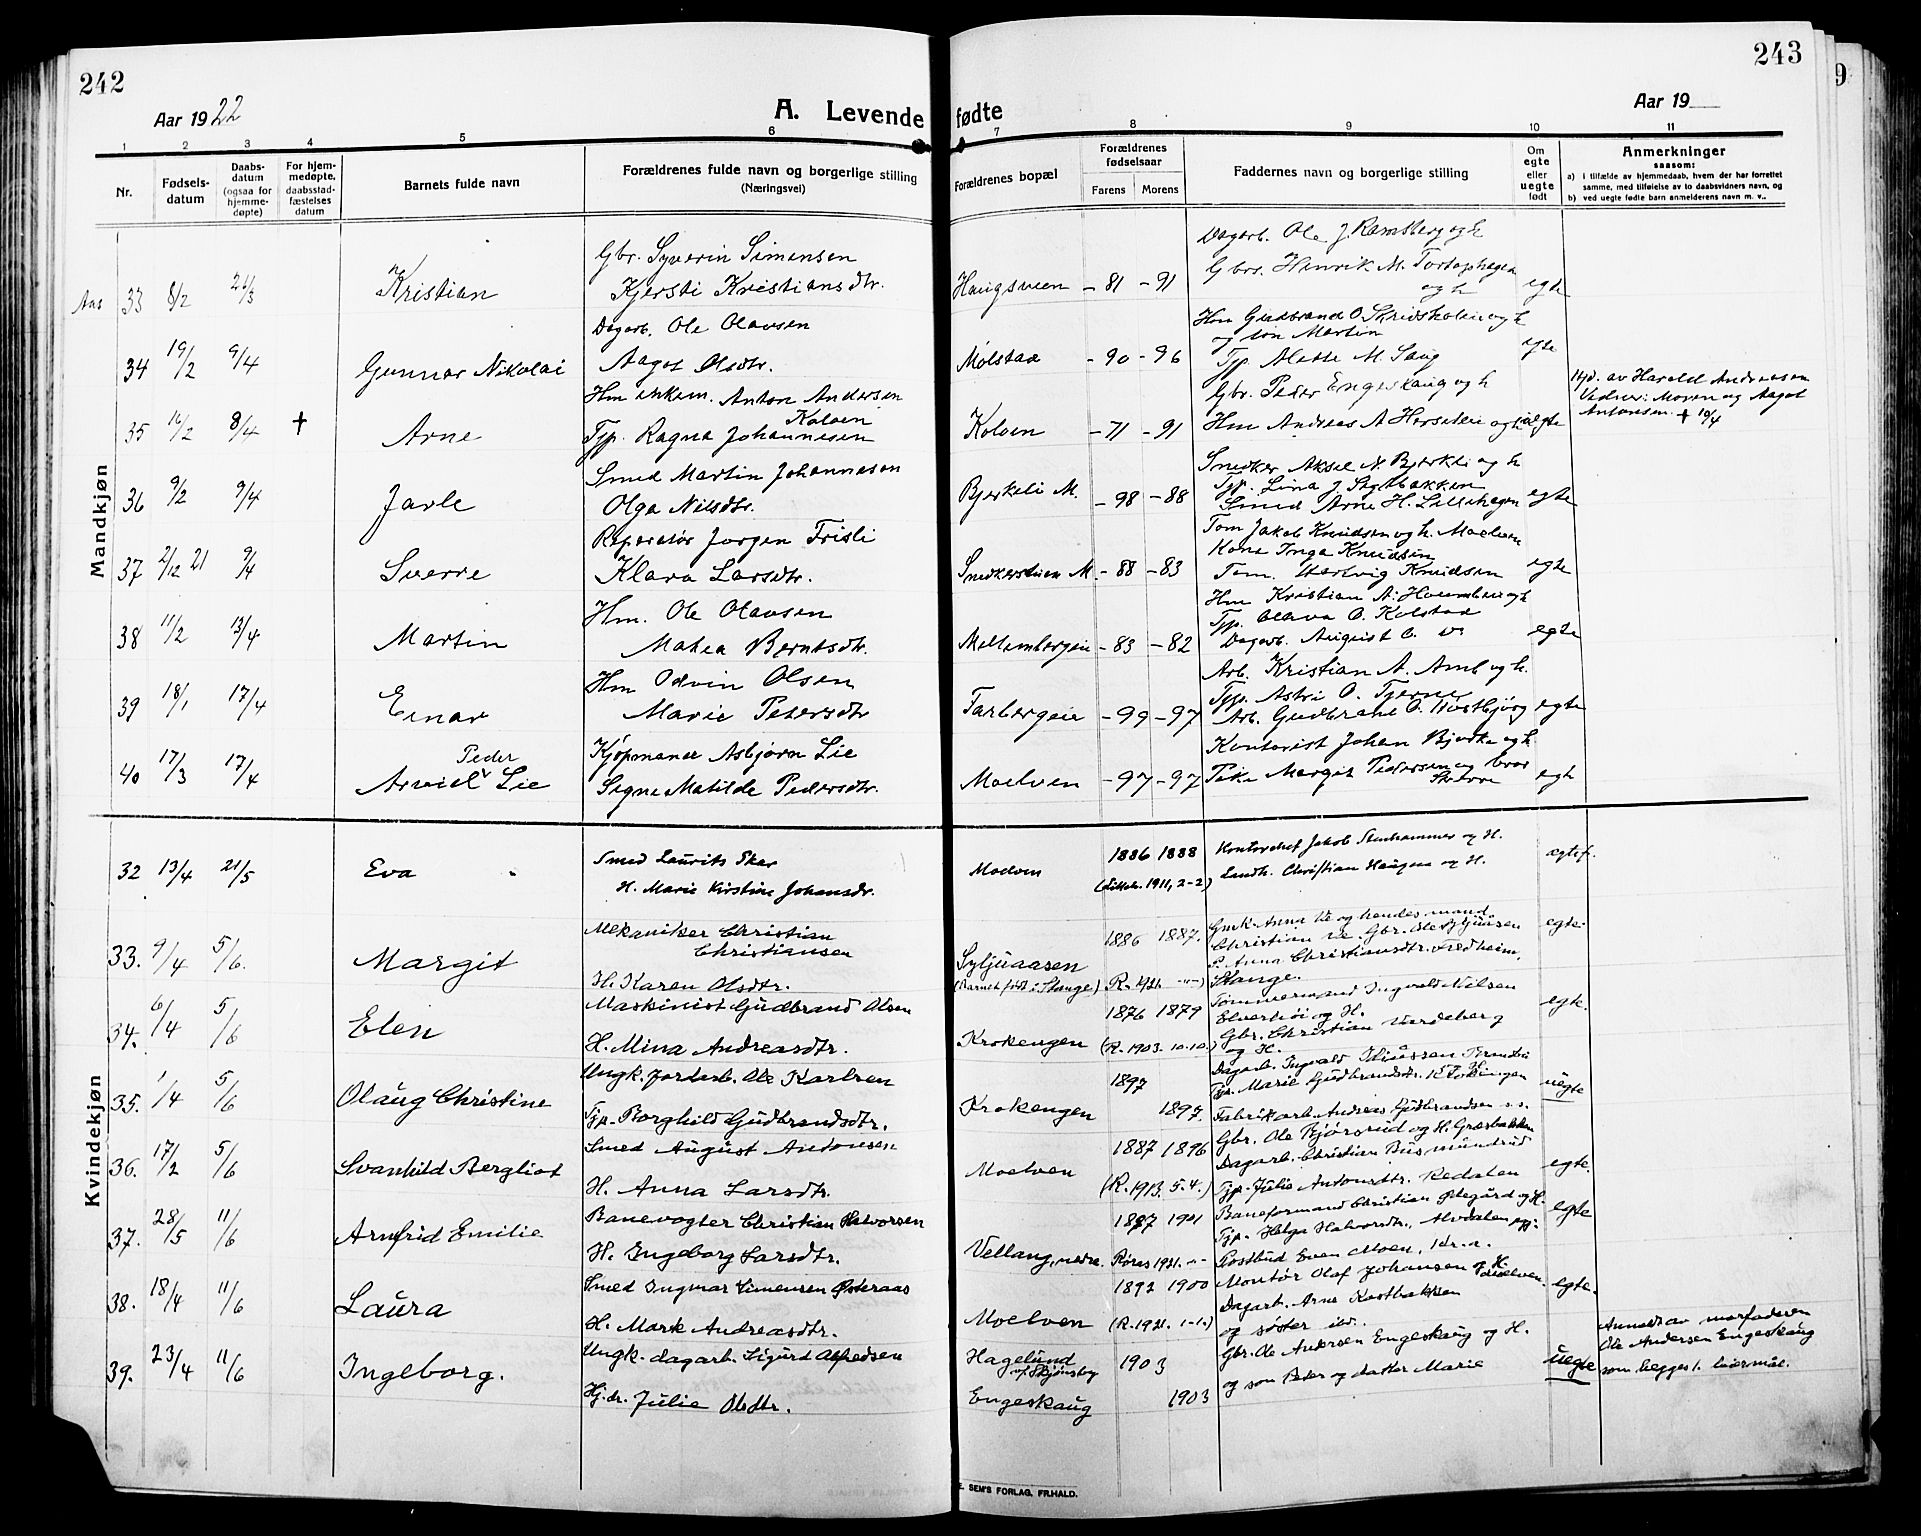 242
Aar 1922
A. Levende
1 2 3 4 5 6
Nr.
Fødsels-
datum
Daabs-
datum
(ogsaa for
hjemme-
døpte)
For hjem-
medøpte.
daabsstad-
fæstelses
datum
Barnets fulde navn
Forældrenes fulde navn og borgerlige stilling
(Næringsvei)
Mandkjøn
Aas 33 8/2 26/3 Kristian
Gbr. Syverin Simensen
Kjersti Kristiansdtr.
34 19/2 9/4 Gunnar Nikolai
Dagarb. Ole Olavsen
Aagot Olsdtr.
35 16/2 8/4 + Arne
Hm enkem. Anton Andersen
Kolven
Tjp. Ragna Johannesen
36 9/2 9/4 Jarle
Smed Martin Johannesen
Olga Nilsdtr.
37 2/12 21 9/4 Sverre
Reparatør Jørgen Frisli
Klara Larsdtr.
38 11/2 13/4 Martin
Hm. Ole Olavsen
Matea Berntsdtr.
39 18/1 17/4 Einar
Hm Odvin Olsen
Marie Petersdtr
40 17/3 17/4 Arvid Peder Lie
Kjøpmand Asbjørn Lie
Signe Matilde Pedersdtr.
Kvindekjøn
32 13/4 21/5 Eva
Smed Laurits Skar
H. Marie Kirstine Johansdr.
33. 9/4 5/6. Margit
Mekaniker Christian
Christiansen
H. Karen Olsdtr.
34. 6/4 5/6 Elen
Maskinist Gudbrand Olsen
H. Mina Andreasdtr.
35. 1/4 5/6 Olaug Christine
Ungk. Jordarb. Ole Karlsen
Tjp. Borghild Gudbrandsdtr.
36. 17/2 5/6 Svanhild Bergliot
Smed August Antonsen
H. Anna Larsdtr.
37. 28/5 11/6 Arnfrid Emilie
Banevogter Christian Halvorsen
H. Ingeborg Larsdtr.
38. 18/4 11/6 Laura
Smed Ingmar Simensen Østeraas
H. Marte Andreasdtr.
39. 23/4 11/6 Ingeborg.
Ungk. dagarb. Sigurd Alfredsen
Hj.dr. Julie Olsdtr.
243
9
fødte
Aar 19
7 8 9 10 11
Forældrenes bopæl
Forældrenes
fødselsaar
Farens Morens
Faddernes navn og borgerlige stilling
Om
egte
eller
uegte
født
Anmerkninger
saasom:
a) i tilfælde av hjemmedaab, hvem der har forrettet
samme, med tilføielse av to daabsvidners navn, og
b) ved uegte fødte barn anmelderens navn m. v..
Dagarb. Ole J. Ramsberg og h
Haugsveen – 81 – 91 Gbrs. Henrik M. Tortophagen
og h egte
Hm Gudbrand O. Skridsholen og h
og søn Martin
Mølstad – 90 – 96 Tjp. Alette M. Saug egte
Gbr. Peder Engeskaug og h
Kolven – 71 – 91 Hm Andreas A Horsetere og h uegte
Hjd. av Harald Andreassen
Vidner: Moren og Aagot
Antonsen. + 10/4
Snedker Aksel N. Bjerkli og h
Tjp. Lina J Slytbakken
Bjerkeli M. – 98 – 88 Smed Arne H. Lillehagen egte
Tom Jakob Knudsen og h. Moelven
Kone Inga Knudsen
Snedkerstuen M. – 88 – 83 Tom. Hartvig Knudsen egte
Hm Kristian A. Holmstuen og h
Tjp. Olava O. Kolstad
Mellembergeie – 83 – 82 Dagarb. August O. Do egte
Arb. Kristian A. Amb og h.
Tjp. Astri O. Tjerne
Farbergeie – 99 – 97 Arb. Gudbrand O. Husbjørg egte
Kontorist Johan Bjerke og h
Moelven – 97 – 97 Pike Margit Pedersen og bror
Sverre egte
Moelven 1886 1888 Kontorchef Jakob Stenhammer og H. egtef.
(Lilleh. 1911, 2-2) Landh. Christian Haugen og H.
1886 1887. Gmk. Anna Lie og hendes mand egte.
Christian Lie. Gbr. Ole Syljuasen
Syljuaasen P. Anna Christiansdtr. Fredheim,
(Barnet født i Stange) (R. 1921. -"-) Stange.
1876 1879 Tømmermand Ingvald Nilsen egte.
Elverhøi og H.
Krokengen (R. 1903. 10.10.) Gbr. Christian Nordeberg
og H.
1897 Dagarb. Ingvald Idiussen Strandli
Tjp. Marie Gudbrandsdtr. Krokengen uegte
Krokengen 1897. Fabrikarb. Andreas Gudbrandsen s.s.
1887 1896 Gbr. Ole Bjørsrud og H. Græsbakken
Dagarb. Christian Busmundrud
Moelven egte.
(R. 1913. 5.4.) Tjp. Julie Antonsdtr. Redalen
1897 1901 Baneformand Christian Ødegård og H. egte
Tjp. Helga Halvorsdtr., Alvdalen
Vellang, nedre. Røros 1921. -"- Postbud Even Moen, Kr.a.
1892 1900 Montør Olaf Johansen og H. Moelven. egte.
Dagarb. Arne Kostbakken
Moelven (R. 1921. 1-1.) og søster ibd.
Hagelund
v/Skjønsby 1903 Gbr. Ole Andersen Engeskaug og H. uegte
Engeskaug 1903 og søn Peter og datter Marie
Anmeldt av morfaderen
Ole Andersen Engeskaug
som begges 1. leiermål.
E. SEM'S FORLAG, FR.HALD.